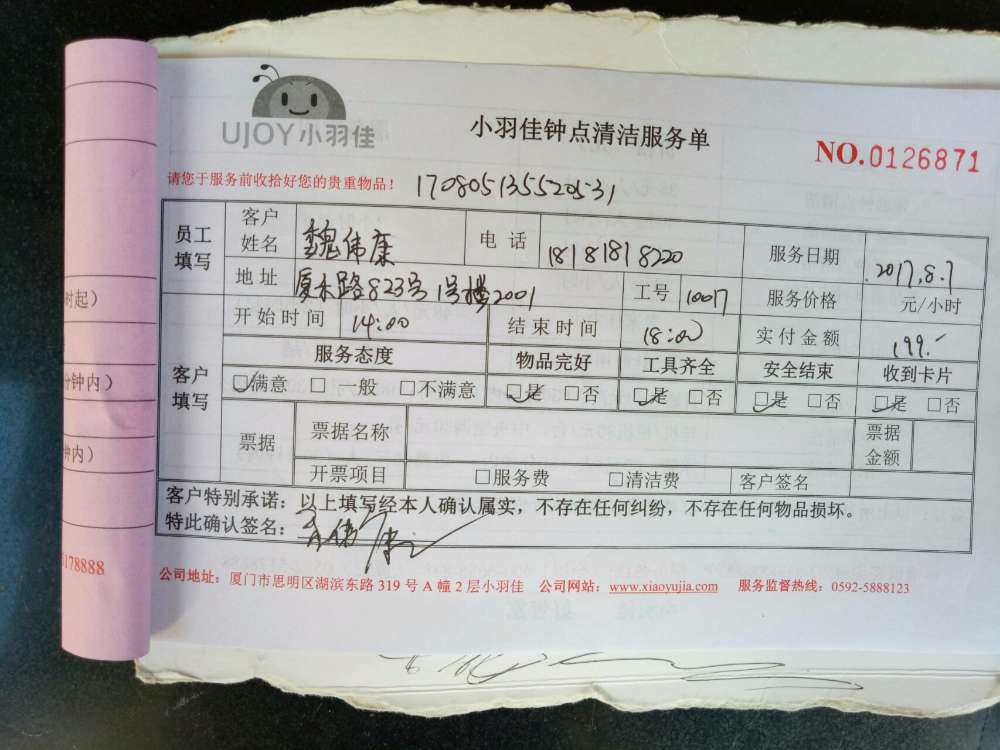 UJOY小羽佳
小羽佳钟点清洁服务单
NO.0126871
请您于服务前收拾好您的贵重物品！ 170805135520531
员工填写 客户姓名 魏伟康 电话 18181818220 服务日期 2017.8.7
地址 厦禾路823号1号楼2001 工号 10017 服务价格 元/小时
开始时间 14:00 结束时间 18:00 实付金额 199.-
客户填写 服务态度 物品完好 工具齐全 安全结束 收到卡片
☑满意 □一般 □不满意 ☑是 □否 ☑是 □否 ☑是 □否 ☑是 □否
票据 票据名称 票据金额
开票项目 □服务费 □清洁费 客户签名
客户特别承诺：以上填写经本人确认属实，不存在任何纠纷，不存在任何物品损坏。
特此确认签名：
公司地址：厦门市思明区湖滨东路 319 号 A 幢 2 层小羽佳 公司网站：www.xiaoyujia.com 服务监督热线：0592-5888123
时起）
分钟内）
钟内）
5178888